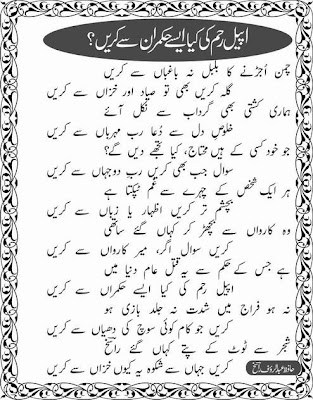 اپیل رحم کی کیا ایسے حکمران سے کریں؟
چمن اُجڑنے کا بلبل نہ باغباں سے کریں
گلہ کریں بھی تو صیاد اور خزاں سے کریں
ہماری کشتی بھی گرداب سے نکل آئے
خلوصِ دل سے دُعا ربِ مہرباں سے کریں
جو خود کسی کے ہیں محتاج، کیا تجھے دیں گے؟
سوال جب بھی کریں ربِ دوجہاں سے کریں
ہر ایک شخص کے چہرے سے غم ٹپکتا ہے
بچشمِ تر کریں اظہار یا زباں سے کریں
وہ کارواں سے بچھڑ کر کہاں گئے ساتھی
کریں سوال اگر، میرِ کارواں سے کریں
ہے جس کے حکم سے یہ قتلِ عام دنیا میں
اپیل رحم کی کیا ایسے حکمراں سے کریں
نہ ہو فراج میں شدت نہ جلد بازی ہو
کریں جو کام کوئی سوچ کی دھیاں سے کریں
شجر سے ٹوٹ کے پتے کہاں گئے راسخ
کریں جہاں سے شکوہ یہ کیوں خزاں سے کریں
حافظ عبدالرؤف راسخ